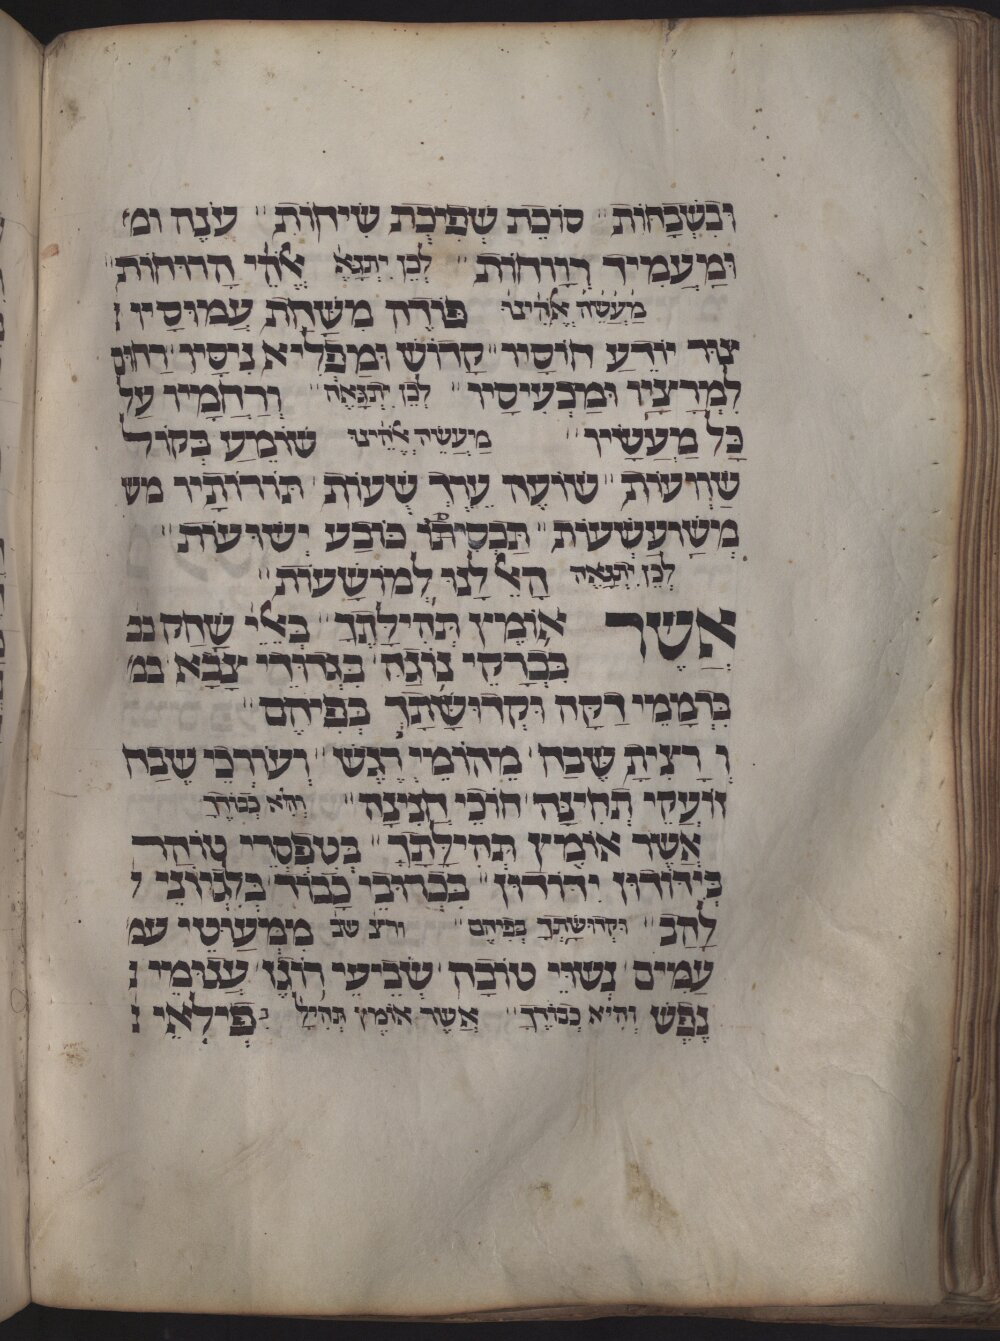 וּבִשְׁבָחוֹת סוֹכֵת שְׁפִיכַת שִׂיחוֹת עֹנֶה וּמ׳
וּמַעֲמִיד רְוָוחוֹת לְכֵן יִתְגָּאֶה אֱלֹהֵי הָרוּחוֹת
מַעֲשֵׂה אֱלֹהֵינוּ פּוֹדֶה מִשַּׁחַת עֲמוּסָיו
צוּר יוֹדֵע חוֹסָיו קָדוֹשׁ וּמַפְלִיא נִיסָיו רַחוּם
לִמְרַצָּיו וּמַכְעִיסָיו לְכֵן יִתְגָּאֶה וְרַחֲמָיו עַל
כָּל מַעֲשָׂיו מַעֲשֵׂה אֱלֹהֵינוּ שׁוֹמֵעַ בְּקוֹל
שַׁוְעוֹת שׁוֹעֶה עֵרֶךְ שָׁעוֹת תּוֹרוֹתָיו מש
מְשׁוּעְשָׁעוֹת תַּכְסִיתוֹ כּוֹבַע יְשׁוּעוֹת
לְכֵן יִתְגָּאֶה הָאֵל לָנוּ לְמוֹשָׁעוֹת
אֲשֶׁר אוֹמֶץ תְּהִילָּתֶךָ בְּאֵלֵי שַׁחַק בב
בְּבִרְקֵי נוֹגַהּ בִּגְדוּדֵי צָבָא במ
בְּדָמְמֵי דַקָּה וּקְדוּשָּׁתְךָ בְּפִיהֶם
וְרָצִיתָ שֶׁבַח מֵהוֹמֵי רֶגֶשׁ וְעוֹרְכֵי שֶׁבַח
זוֹעֲקֵי תְּחִינָּה חוֹכֵי חֲנִינָה וְהִיא כְבוֹדֶךָ
אֲשֶׁר אוֹמֶץ תְּהִילָּתֶךָ בְּטַפְסְרֵי טוֹהַר
בְּיִדּוֹדוּן יִדּוֹדוּן בִּכְרוּבֵי כָבוֹד בְּלִגְיוֹנֵי ל
לַהַב וּקְדוּשָּׁתְךָ בְּפִיהֶם ורצ שב מִמְּעוּטֵי עמ
עַמִּים נְשׁוּיֵי טוֹבָה שְׂבֵיעֵי רוֹגֶז עֲגוּמֵי נ
נֶפֶשׁ וְהִיא כְבוֹדֶךָ אֲשֶׁר אוֹמֶץ תְּהִיל בְּפִילְאֵי נ